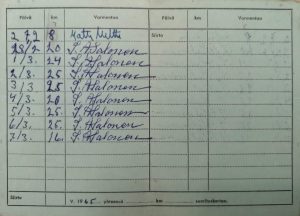 Päivä km Varmentaa Päivä km Varmentaa
27/2 8 Matti Siirto
28/2 20 T. Halonen
1/3. 24 T. Halonen
2/3. 25 T. Halonen
3/3 25 T. Halonen
4/3. 20 T. Halonen
5/3. 25. T. Halonen
6/3. 25. T. Halonen
7/3. 16. T. Halonen
Siirto V. 1965 yhteensä km suorituskerran.